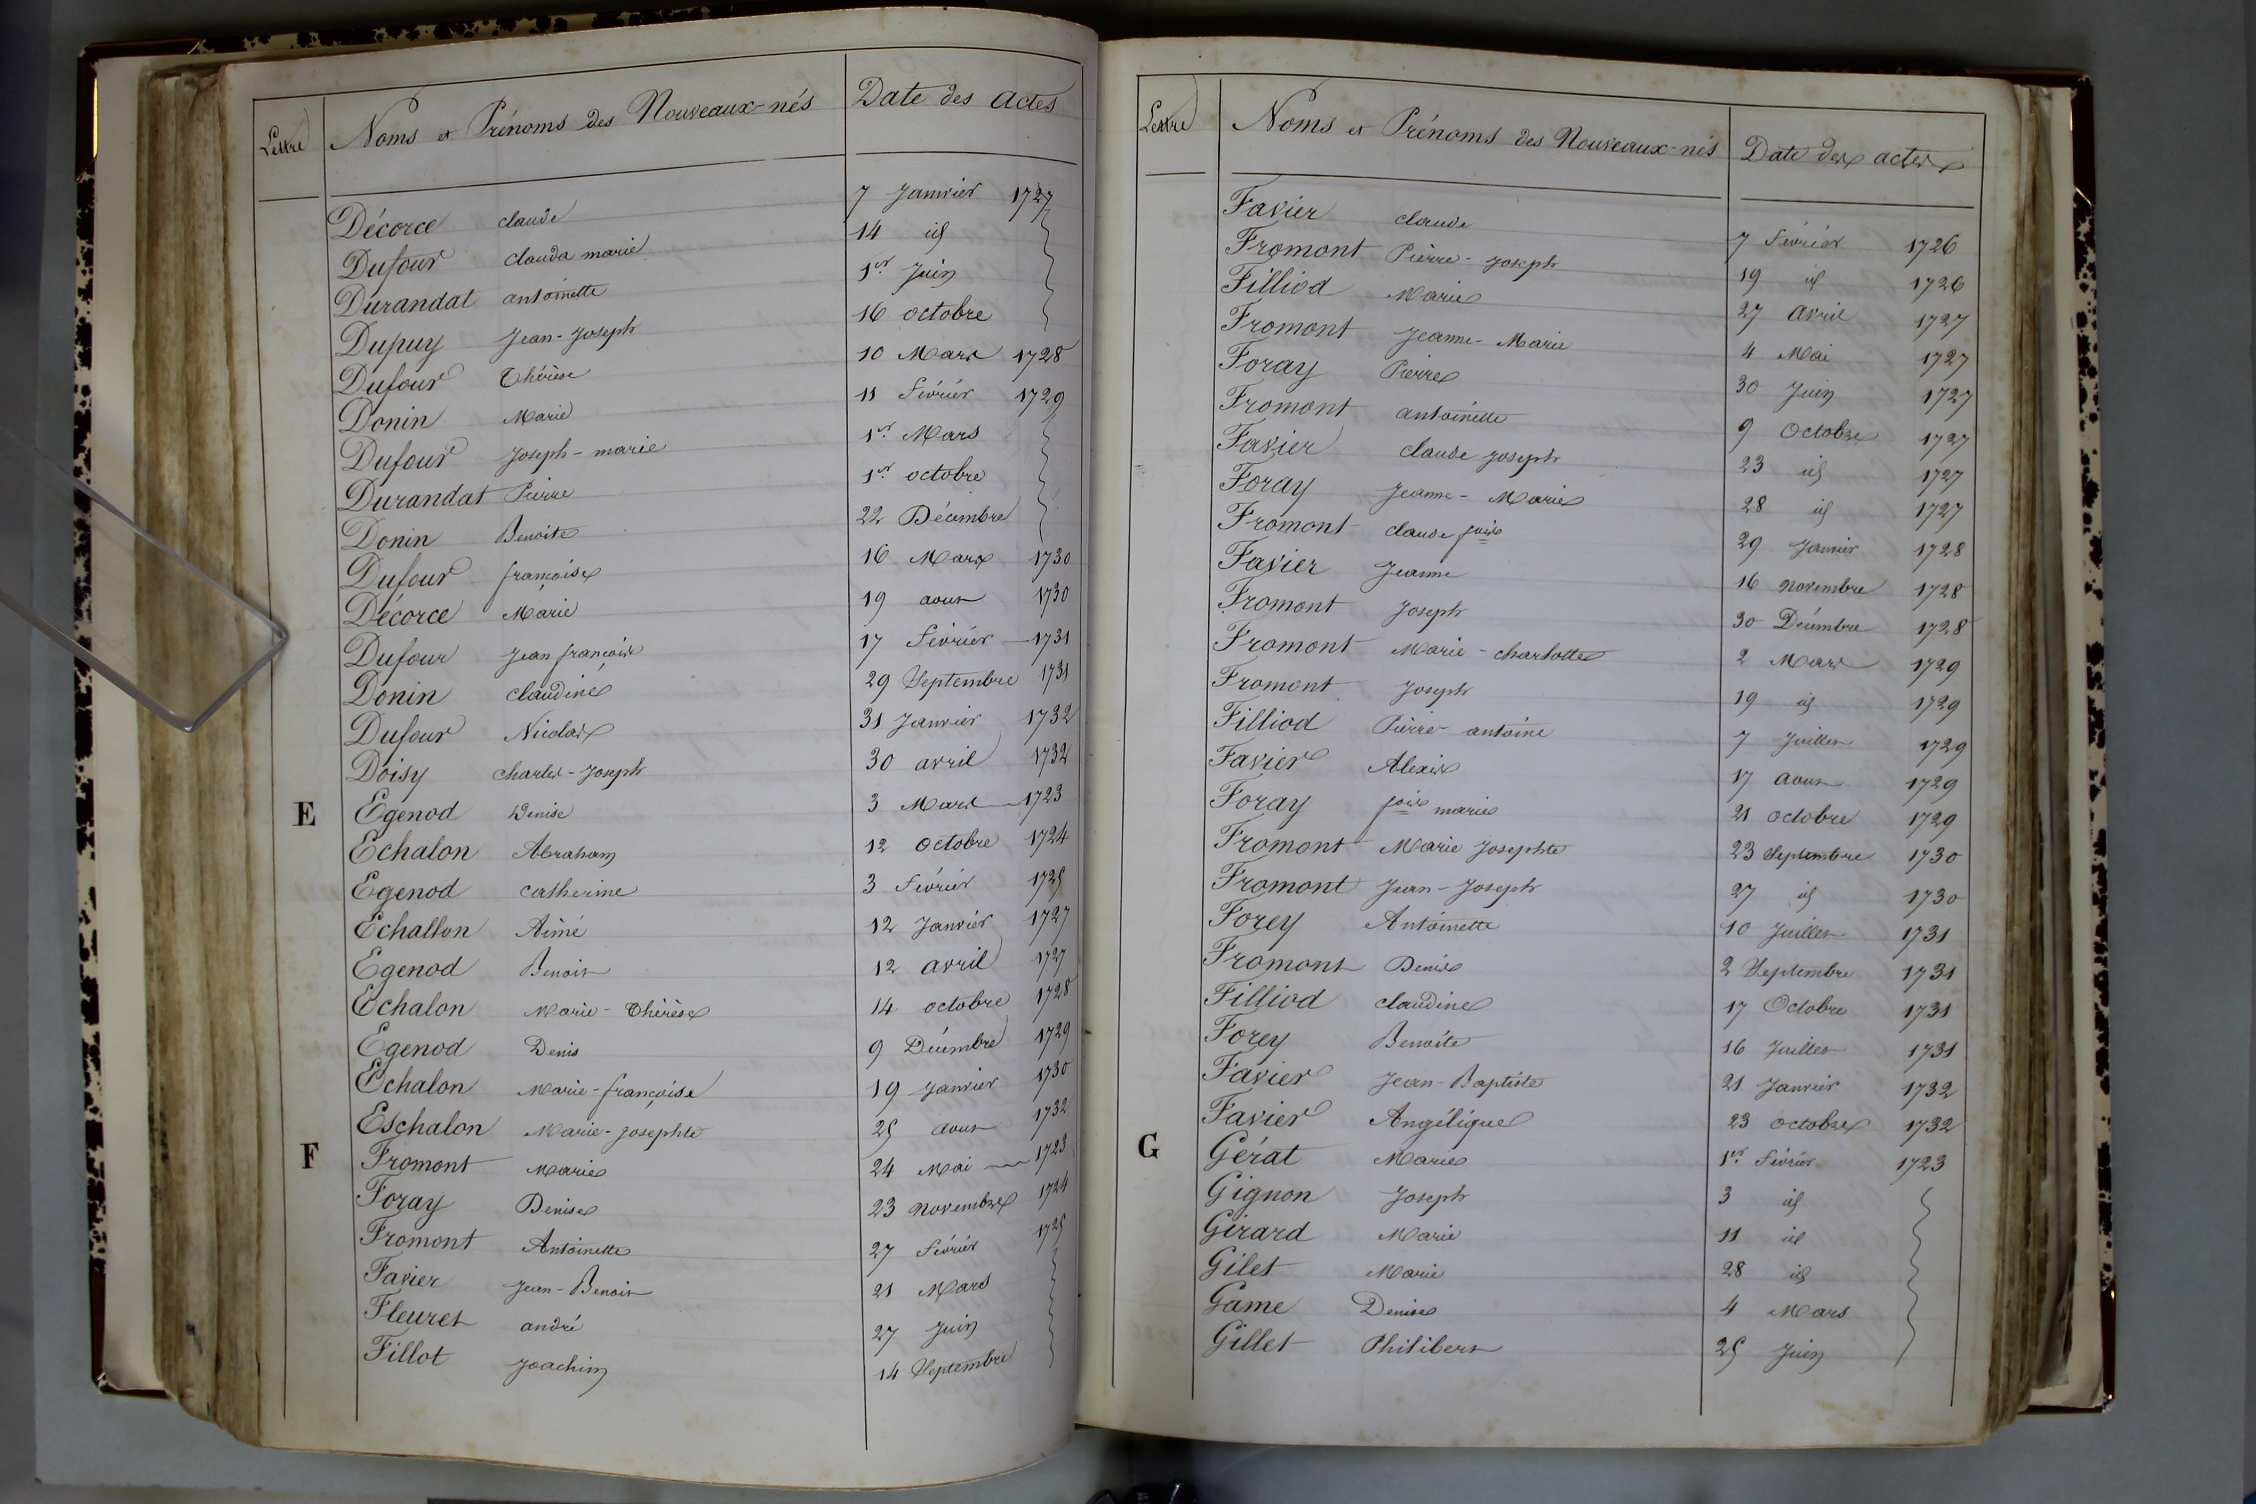 Lettre Noms et Prénoms des Nouveaux-nés Date des actes
Décorce claude 7 Janvier 1727
Dufour clauda marie 14 id
Durandat antoinette 1er Juin
Dupuy Jean-Joseph 16 octobre
Dufour Thérèse 10 Mars 1728
Donin Marie 11 Février 1729
Dufour Joseph-marie 1er Mars
Durandat Pierre 1er octobre
Donin Benoite 22 Décembre
Dufour françoise 16 Mars 1730
Décorce Marie 19 aout 1730
Dufour Jean françois 17 Février 1731
Donin claudine 29 Septembre 1731
Dufour Nicolas 31 Janvier 1732
Doisy charles-Joseph 30 avril 1732
E Egenod Denise 3 Mars 1723
Echalon Abraham 12 Octobre 1724
Egenod catherine 3 Février 1725
Echallon Aimé 12 Janvier 1727
Egenod Benoit 12 avril 1727
Echalon Marie-Thérèse 14 octobre 1728
Egenod Denis 9 Décembre 1729
Echalon Marie-françoise 19 Janvier 1730
Eschalon Marie-Josephte 25 aout 1732
F Fromont Marie 24 Mai 1723
Foray Denise 23 Novembre 1724
Fromont Antoinette 27 Février 1725
Favier Jean-Benoit 21 Mars
Fleuret andré 27 Juin
Fillot Joachim 14 Septembre
Lettre Noms et Prénoms des Nouveaux-nés Date des actes
Favier claude 7 Février 1726
Fromont Pierre-Joseph 19 id 1726
Filliod Marie 27 avril 1727
Fromont Jeanne-Marie 4 Mai 1727
Foray Pierre 30 Juin 1727
Fromont antoinette 9 Octobre 1727
Favier claude Joseph 23 id 1727
Foray Jeanne-Marie 28 id 1727
Fromont claude fois 29 Janvier 1728
Favier Jeanne 16 Novembre 1728
Fromont Joseph 30 Décembre 1728
Fromont Marie-charlotte 2 Mars 1729
Fromont Joseph 19 id 1729
Filliod Pierre antoine 7 Juillet 1729
Favier Alexis 17 aout 1729
Foray fois marie 21 octobre 1729
Fromont Marie Josephte 23 Septembre 1730
Fromont Jean-Joseph 27 id 1730
Forey Antoinette 10 Juillet 1731
Fromont Denis 2 Septembre 1731
Filliod claudine 17 Octobre 1731
Forey Benoite 16 Juillet 1731
Favier Jean-Baptiste 21 Janvier 1732
Favier Angélique 23 octobre 1732
G Gérat Marie 1er Février 1723
Gignon Joseph 3 id
Girard Marie 11 id
Gilet Marie 28 id
Game Denise 4 Mars
Gillet Philibert 25 Juin